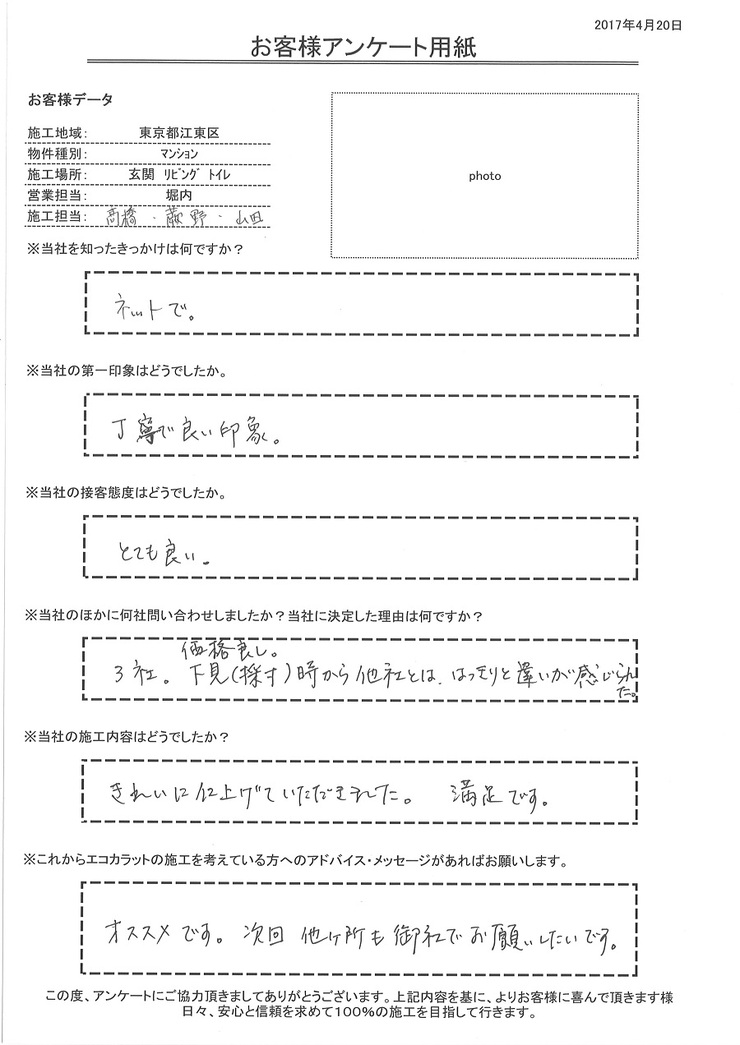 2017年4月20日
お客様アンケート用紙
お客様データ
施工地域: 東京都江東区
物件種別: ﾏﾝｼｮﾝ
施工場所: 玄関 ﾘﾋﾞﾝｸﾞ ﾄｲﾚ
営業担当: 堀内
施工担当: 高橋・蕨野・山田
photo
※当社を知ったきっかけは何ですか?
ネットで。
※当社の第一印象はどうでしたか。
丁寧で良い印象。
※当社の接客態度はどうでしたか。
とても良い。
※当社のほかに何社問い合わせしましたか?当社に決定した理由は何ですか?
価格良し。
3社。下見(採寸)時から他社とは、はっきりと違いが感じられ
た。
※当社の施工内容はどうでしたか?
きれいに仕上げていただきました。 満足です。
※これからエコカラットの施工を考えている方へのアドバイス・メッセージがあればお願いします。
オススメです。次回 他ヶ所も御社でお願いしたいです。
この度、アンケートにご協力頂きましてありがとうございます。上記内容を基に、よりお客様に喜んで頂きます様
日々、安心と信頼を求めて100%の施工を目指して行きます。